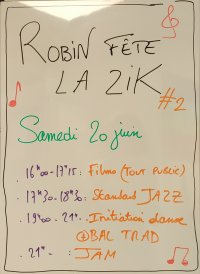 ROBIN FÊTE
LA ZIK
#2
Samedi 20 juin
. 16h00-17h15 : Films (TOUT PUBLIC)
. 17h30-18h30 : Standard JAZZ
. 19h00 - 21h. : Initiation danse
⊕ BAL TRAD
. 21h. : JAM